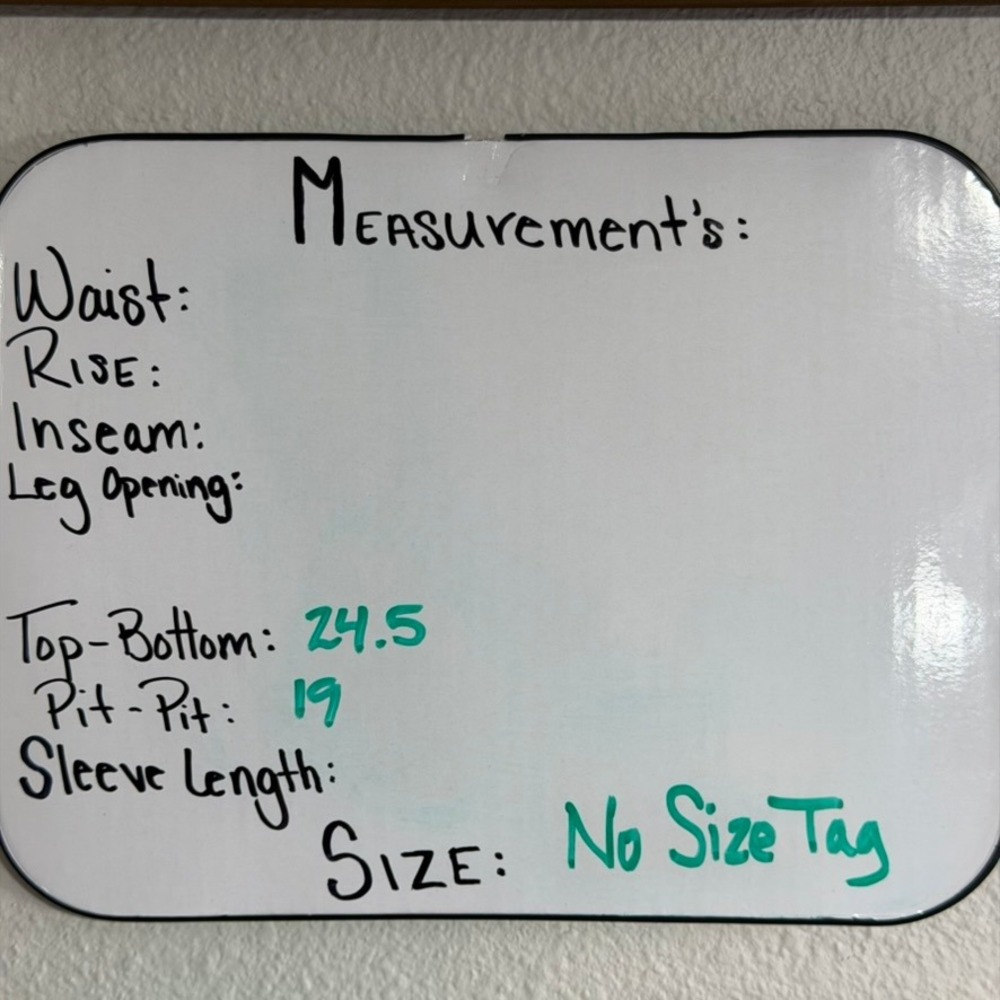 MEASurement's:
Waist:
RISE:
Inseam:
Leg Opening:
Top-Bottom: 24.5
Pit-Pit: 19
Sleeve Length:
SIZE: No Size Tag